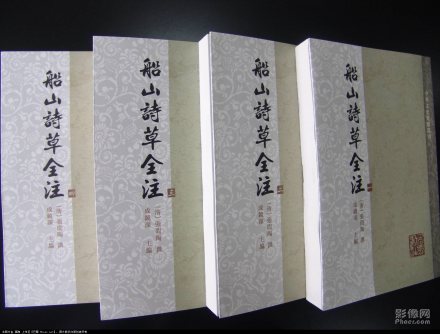 船山詩草全注
四
〔清〕張問陶 撰
成鏡深 主編
船山詩草全注
三
〔清〕張問陶 撰
成鏡深 主編
船山詩草全注
二
〔清〕張問陶 撰
成鏡深 主編
船山詩草全注
一
〔清〕張問陶 撰
成鏡深 主編
影像网
Pheer.com